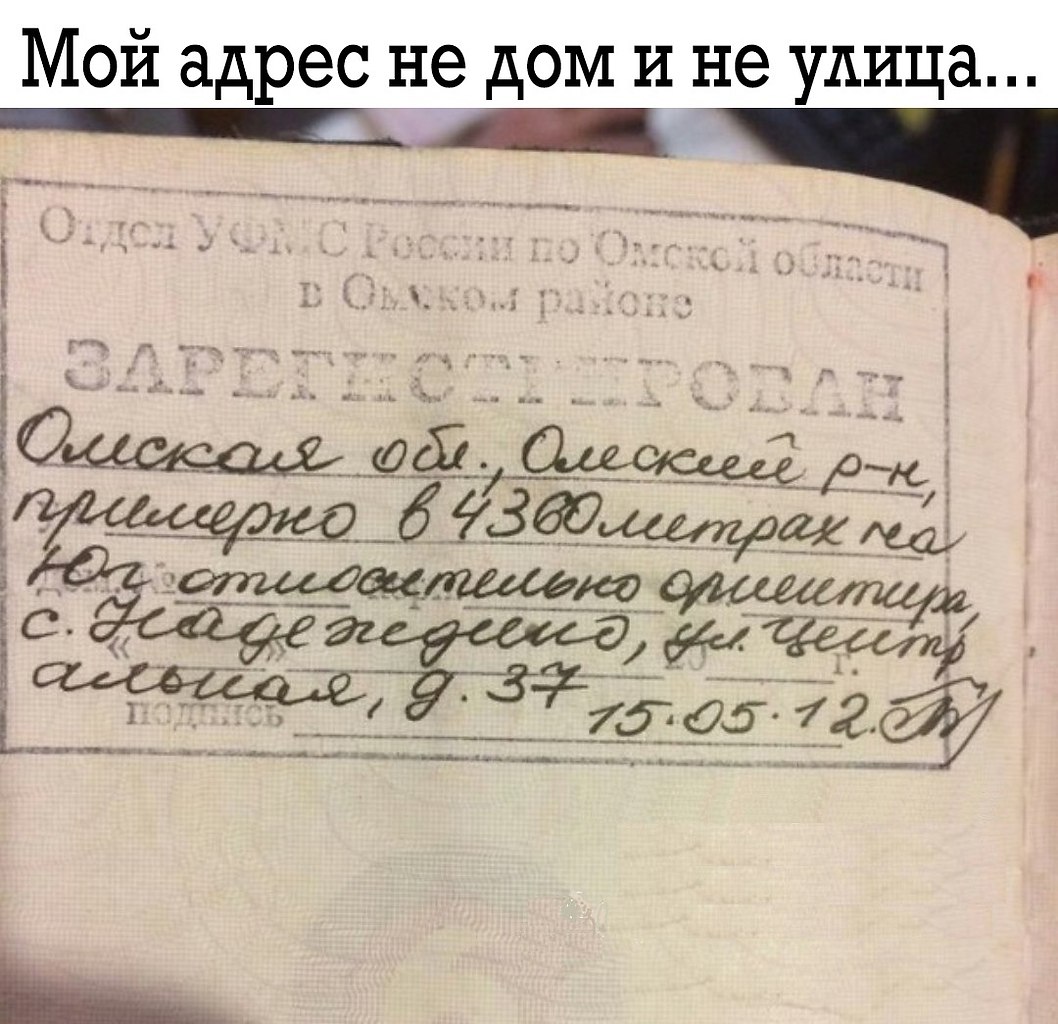 Мой адрес не дом и не улица...
Отдел УФМС России по Омской области
в Омском районе
ЗАРЕГИСТРИРОВАН
Омская обл., Омский р-н,
примерно в 4360 метрах на
Юг относительно ориентира,
с. Надеждино, ул. Центр
альная, д. 37
подпись
15.05.12.